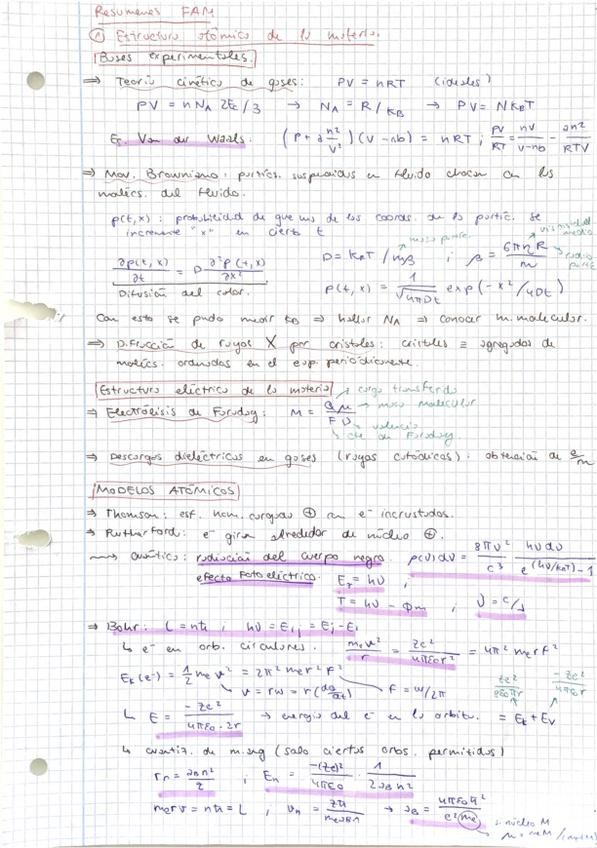 Resumenes FAM
① Estructura atómica de la materia.
Bases experimentales.
⇒ Teoría cinética de gases: PV = nRT (ideales)
PV = n N_A 2E_c/3 → N_A = R/k_B → PV = N k_B T
Ec. Van der Waals. (P + a n²/V²)(V - nb) = nRT ; PV/RT = nV/(V-nb) - an²/RTV
⇒ Mov. Browniano: partícs. suspendidas en fluido chocan con las
molécs. del fluido.
p(t,x): probabilidad de que una de las coords. de la partíc. se
incremente "x" en cierto t
∂p(t,x)/∂t = D ∂²p(t,x)/∂x² D = k_B T/mβ → masa partc. ; β = 6πηR/m → viscosidad medio → radio partc
Difusión del calor. p(t,x) = 1/√(4πDt) exp(-x²/4Dt)
Con esto se pudo medir k_B ⇒ hallar N_A ⇒ conocer m. molecular.
⇒ Difracción de rayos X por cristales: cristales ≡ agregados de
molécs. ordenadas en el esp. periódicamente.
Estructura eléctrica de la materia
⇒ Electrólisis de Faraday: M = Qμ/Fυ → carga transferida → masa molecular → valencia → cte de Faraday.
⇒ Descargas dieléctricas en gases (rayos catódicos): obtención de e/m
MODELOS ATÓMICOS
⇒ Thomson: esf. hom. cargada ⊕ con e⁻ incrustados.
⇒ Rutherford: e⁻ giran alrededor de núcleo ⊕.
⟿ Cuántica: radiación del cuerpo negro ρ(ν)dν = 8πν²/c³ hνdν/(e^(hν/k_BT) - 1)
efecto fotoeléctrico. E_γ = hν ;
T = hν - Φm , ν = c/λ
⇒ Bohr: L = nħ ; hν = E_ij = E_j - E_i
↳ e⁻ en orb. circulares. m_e v²/r = Ze²/4πε₀r² = 4π² m_e r f²
E_k(e⁻) = ½ m_e v² = 2π² m_e r² f² Ze²/8πε₀r -Ze²/4πε₀r
v = rω = r(dθ/dt) f = ω/2π
↳ E = -Ze²/4πε₀·2r → energía del e⁻ en la órbita. = E_k + E_V
↳ cuantiz. de m. ang (solo ciertas orbs. permitidas)
r_n = a_B n²/Z ; E_n = -(Ze)²/4πε₀ · 1/2a_B n²
m_e r v = nħ = L , v_n = Zħ/m_e a_B n → a_B = 4πε₀ħ²/e² m_e
→ núcleo M